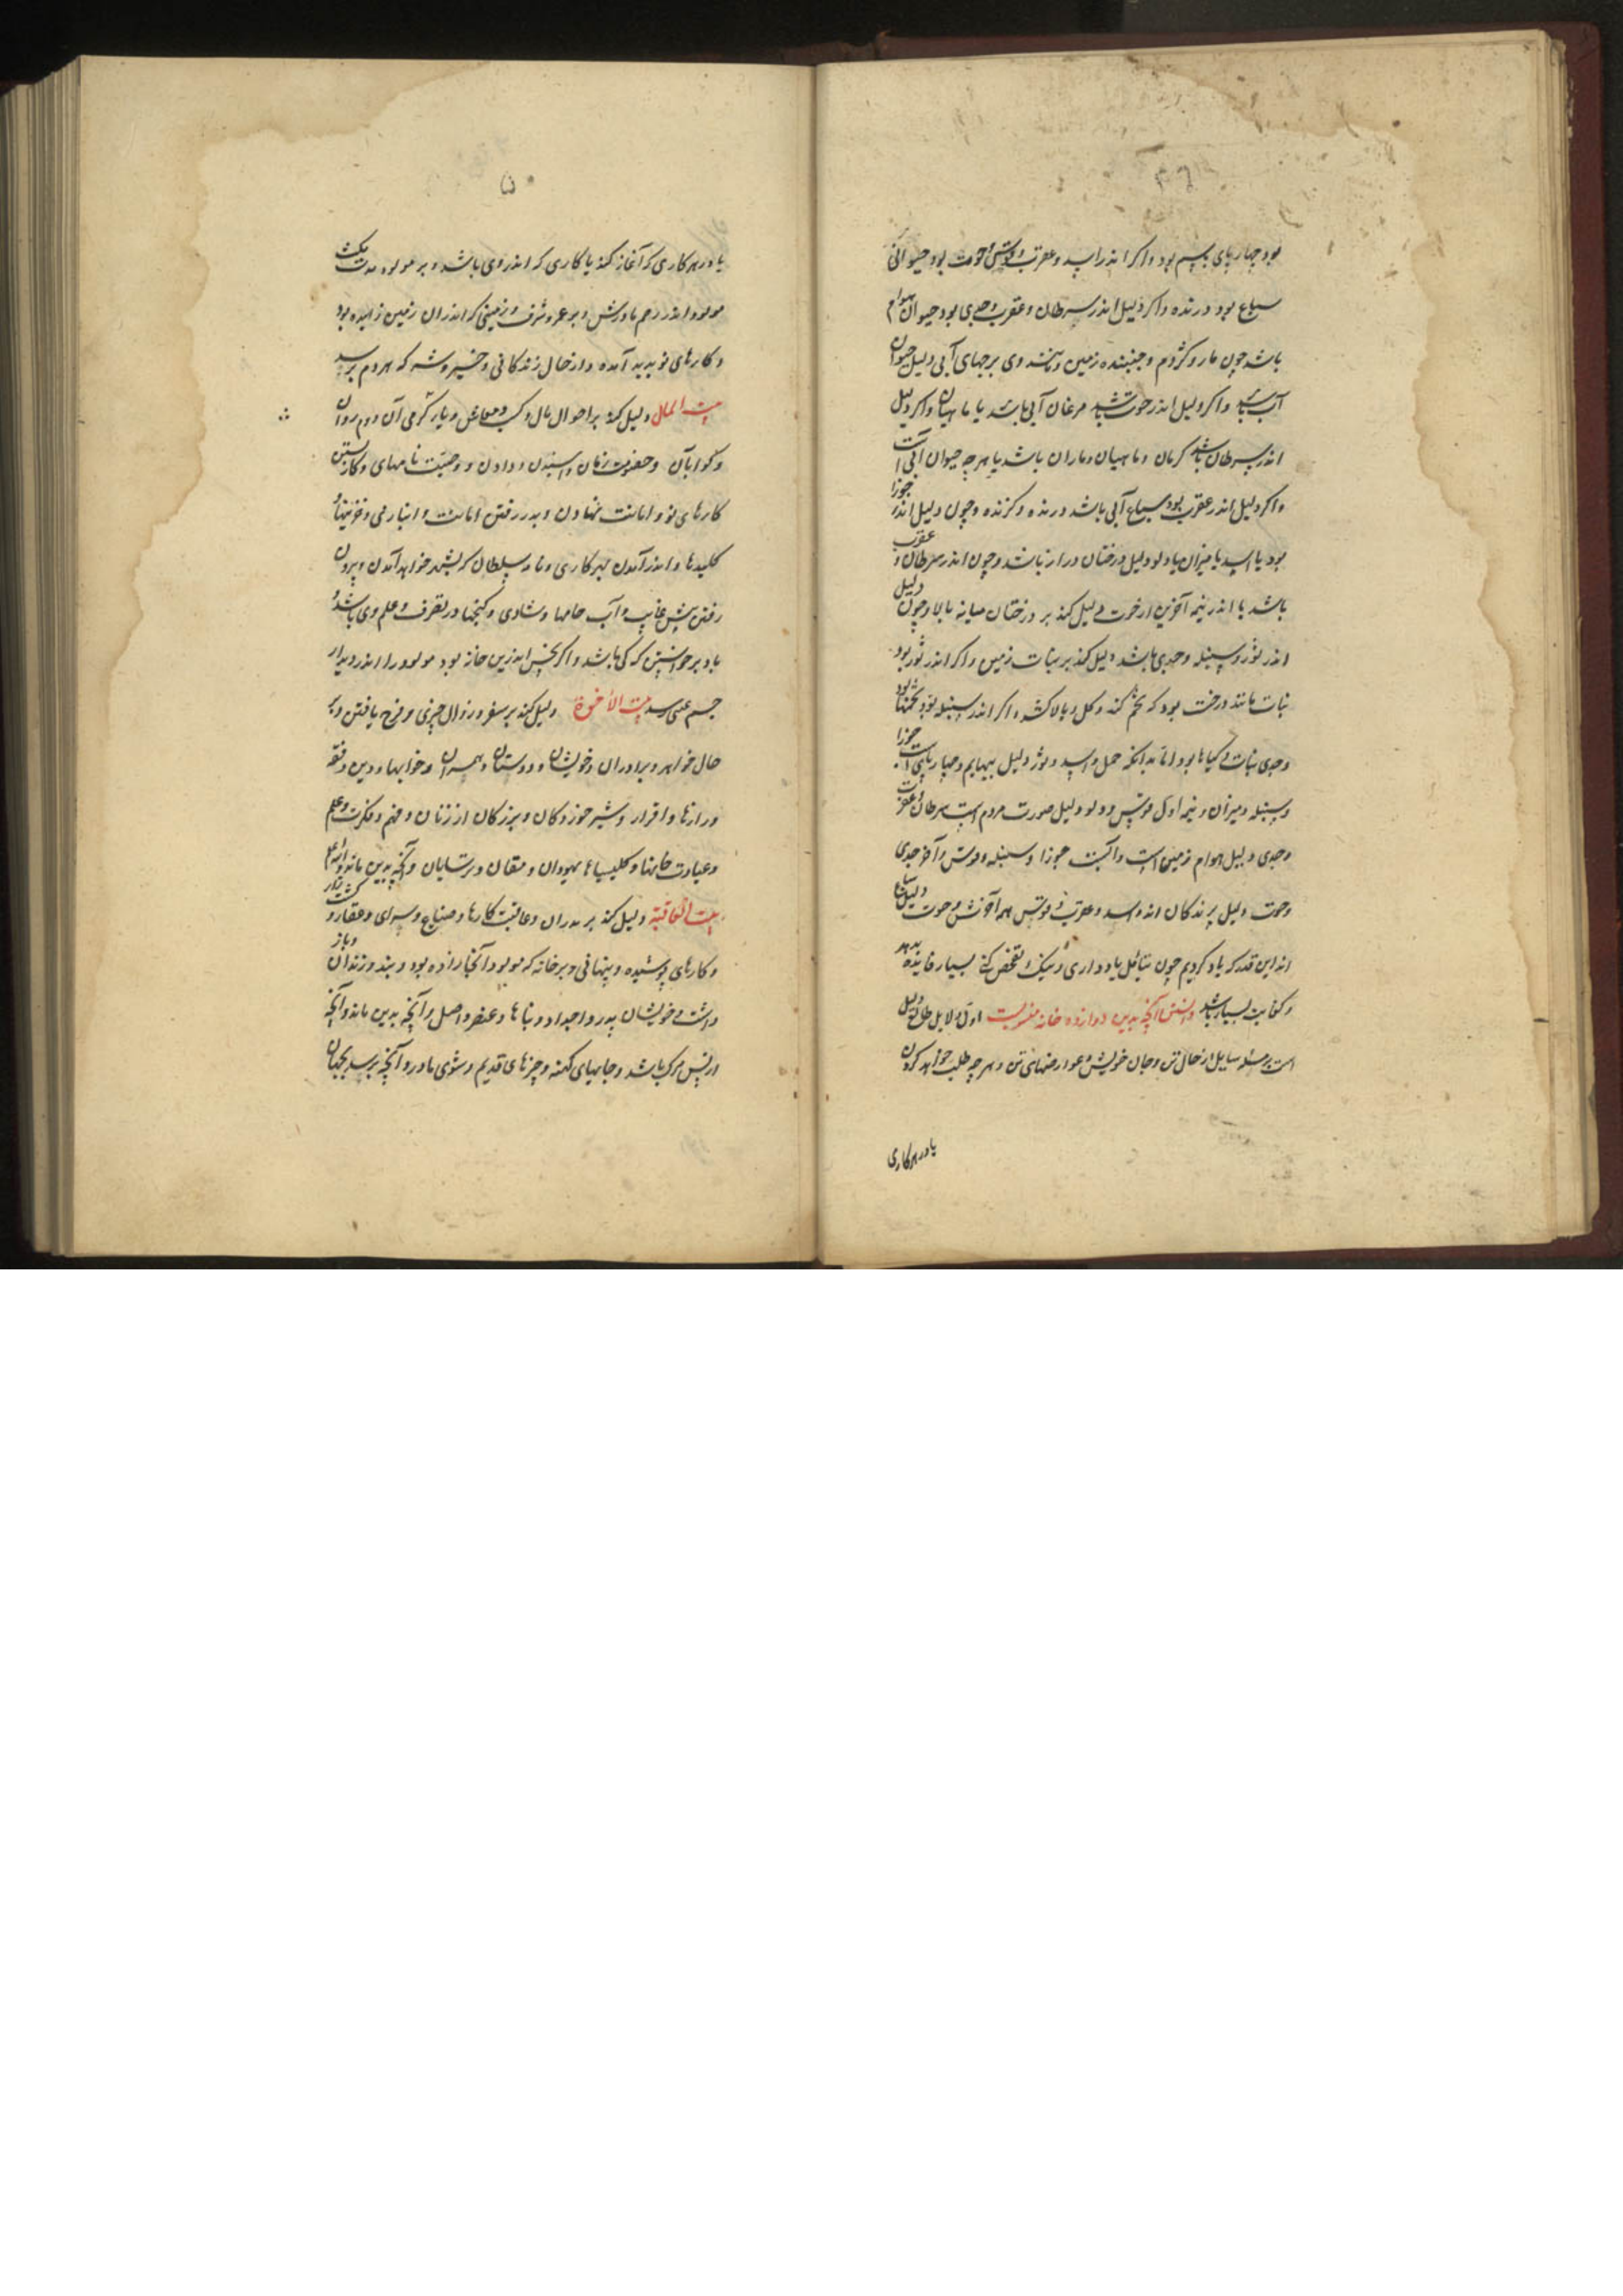 ۴۹
بود چهارپای بسم بود و اکر اندر اسد و عقرب و قوس و حوت بود حیوانی
سباع بود درنده و اکر دلیل اندر سرطان و عقرب و جدی بود حیوان هوام
باشد چون مار و کژدم و جنبنده زمین و برجهای آبی دلیل حیوان
آب باشد و اکر دلیل اندر حوت باشد مرغان آبی باشد یا ماهیان و اکر دلیل
اندر سرطان باشد کرمان و ماهیان و ماران باشد یا هر چه حیوان آبی است
و اکر دلیل اندر عقرب بود سباع آبی باشد درنده و کزنده و چون دلیل اندر جوزا
بود یا اسد یا میزان یا دلو دلیل درختان دراز باشد و چون اندر سرطان و عقرب
باشد یا اندر نیمه آخرین از حوت دلیل کند بر درختان میانه بالا و چون دلیل
اندر ثور و سنبله و جدی باشد دلیل کند بر نبات زمین و اکر اندر ثور بود
نبات مانند درخت بود که تخم کند و کل و بالا کشد و اکر اندر سنبله بود تخمها بود
و جدی نبات کیاها بود اما بدانکه حمل و اسد و ثور دلیل بهایم و چهارپای است جوزا
و سنبله و میزان و نیمه اول قوس و دلو دلیل صورت مردم است سرطان و عقرب
و جدی دلیل هوام زمین است جوزا و سنبله و قوس و آخر جدی
و حوت دلیل پرندکان اند و اسد و عقرب و قوس همه آخرش و حوت دلیل سباع
اند این قدر که یاد کردیم چون تأمل یاد داری و نیک تفحص کنی بسیار فایده بدهد
و کفایت بسیار باشد دانستن آنچه بدین دوازده خانه منسوبست اول دلایل طالع دلیل
است بر مسئله سایل از حال تن و جان خویش و عوارضهای تن و هر چه طلب خواهد کردن
یا در هر کاری
۵۰
یا در هر کاری که آغاز کند یا کاری که اندر وی باشد و بر مولود مدت مکث
مولود اندر رحم مادرش و بر عز و شرف و زمینی که اندر ان زمین زاییده بود
و کارهای نو پدید آمده و از حال زندکانی و خیر و شر که بمردم برسد
بیت المال دلیل کند بر احوال مال و کسب و معاش و یارکرمی آن دوم روان
و کوابآن و خصومت زنان و ستدن و دادن و وصیت نامهای و کار بستن
کارهای نو و امانت نهادن و بدر رفتن امانت و انبار می و خزینها و
کلیدها و اندر آمدن بهر کاری و نامه سلطان که بشهر خواهد آمدن و بیرون
رفتن پیش غایب و آب جامها و شادی و کنجها در تصرف و علم وی باشد و
یا دبر خواستن که کی باشد و اکر نحس اندرین خانه بود مولود را اندر دیدار
چشم عیبی رسد بیت الأخوة دلیل کند بر سفر و زوال چیزی و فرح یافتن و بر
حال خواهر و برادران و خویشان و دوستان و همسران و خوابها و دین و فقه
و رازها و اقرار و شیر خوردکان و بزرکان از زنان و فهم و فکرت و علم
و عبادت خانها و کلیسیاء یهودان و مغان و ترسایان و آنچه بدین ماند والله اعلم
بیت العاقبة دلیل کند بر پدران و عاقبت کارها و ضیاع و سرای و عقار و کشت زار
و کارهای پوشیده و پنهانی و بر خانه که مولود آنجا زاده بود و بند و زندان و باز
داشت خویشان پدر و اجداد و بناها و عنصر و اصل و آنچه بدین ماند و آنچه
از پس مرک باشد و جایهای کهنه و چیزهای قدیم و شوی مادر و آنچه برسد بجهان